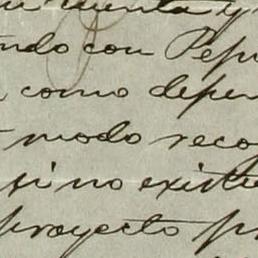 cuenta y
ndo con Pepi
como depen
modo reco
si no existi
proyecto pr